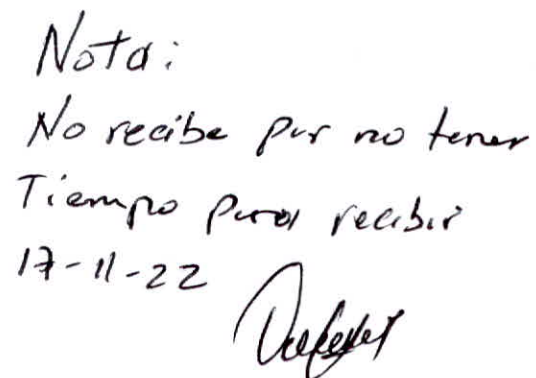 Nota:
No recibe por no tener
Tiempo para recibir
17-11-22